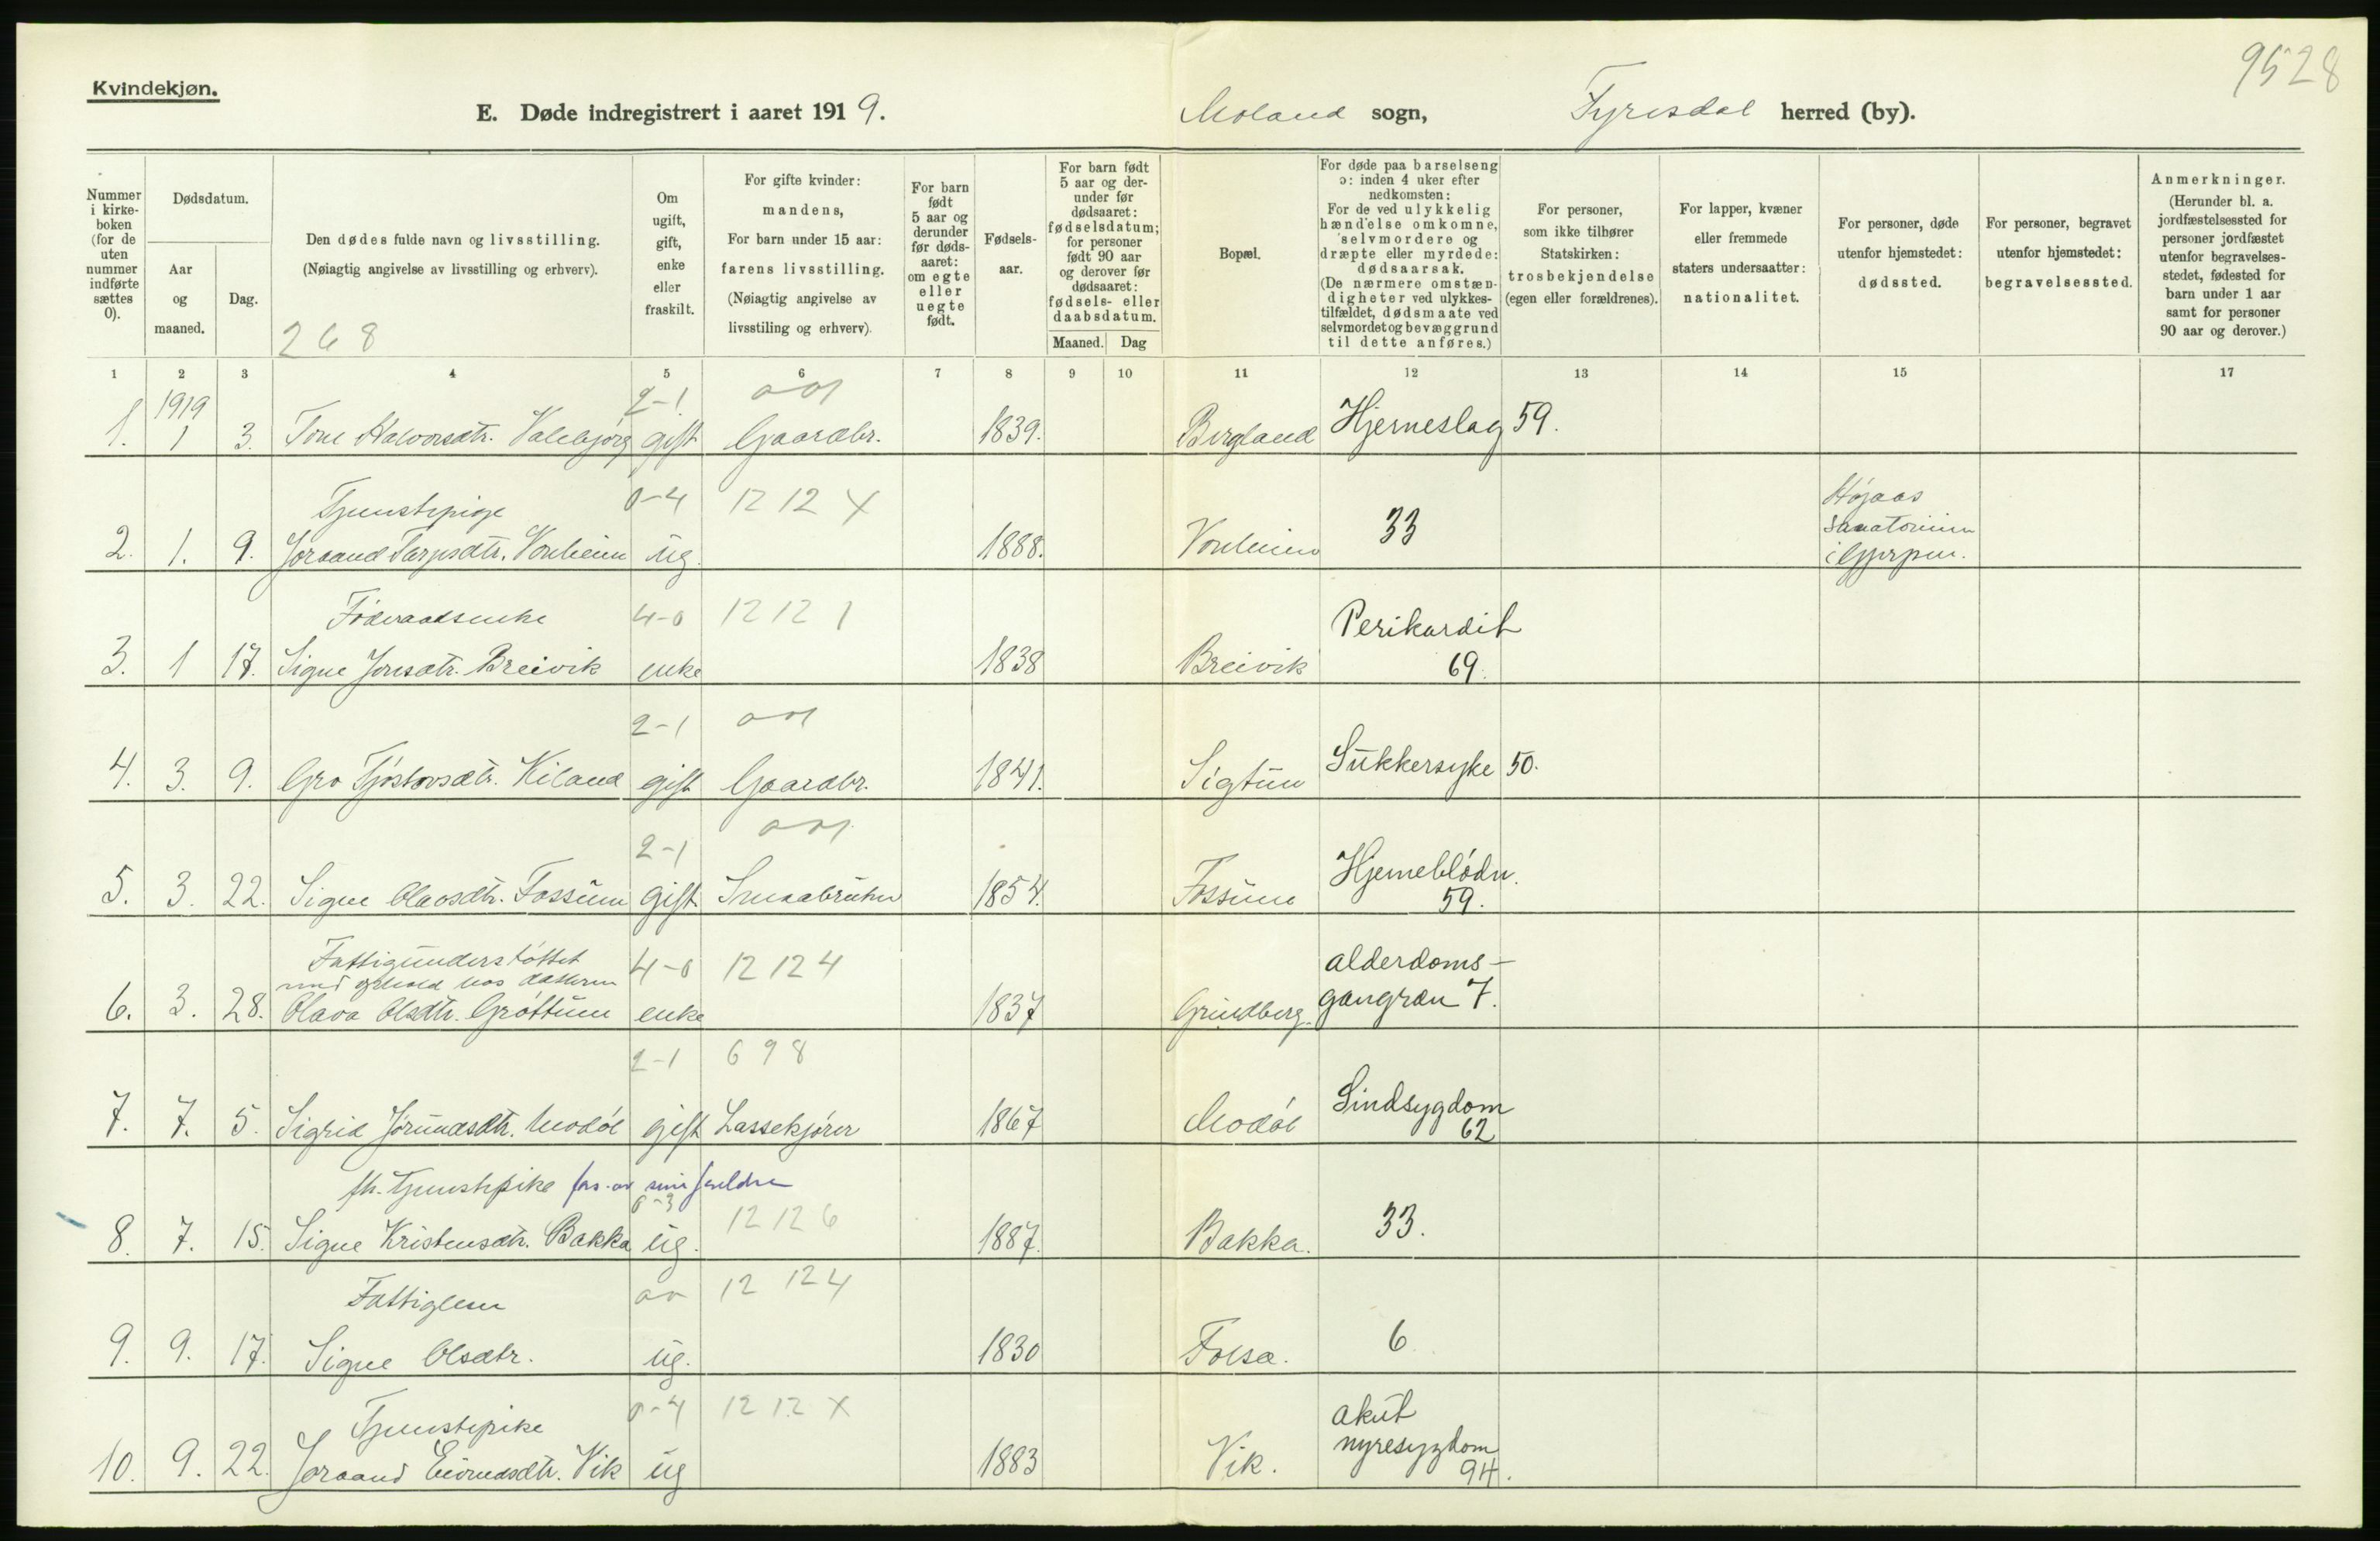 9528
Kvindekjøn.
E. Døde indregistrert i aaret 1919. Moland sogn, Fyresdal herred (by).
Nummer i kirke-boken (for de uten nummer indførte sættes 0).
Dødsdatum.
Aar og maaned.
Dag.
Den dødes fulde navn og livsstilling.
(Nøiagtig angivelse av livsstilling og erhverv).
268
Om ugift, gift, enke eller fraskilt.
For gifte kvinder: mandens,
For barn under 15 aar: farens livsstilling.
(Nøiagtig angivelse av livsstiling og erhverv).
For barn født 5 aar og derunder før døds-aaret: om egte eller uegte født.
Fødsels-aar.
For barn født 5 aar og der-under før dødsaaret: fødselsdatum; for personer født 90 aar og derover før dødsaaret: fødsels- eller daabsdatum.
Maaned. Dag
Bopæl.
For døde paa barselseng ɔ: inden 4 uker efter nedkomsten:
For de ved ulykkelig hændelse omkomne, selvmordere og dræpte eller myrdede: dødsaarsak.
(De nærmere omstæn-digheter ved ulykkes-tilfældet, dødsmaate ved selvmordet og bevæggrund til dette anføres.)
For personer, som ikke tilhører Statskirken: trosbekjendelse (egen eller forældrenes).
For lapper, kvæner eller fremmede staters undersaatter: nationalitet.
For personer, døde utenfor hjemstedet: dødssted.
For personer, begravet utenfor hjemstedet: begravelsessted.
Anmerkninger.
(Herunder bl. a. jordfæstelsessted for personer jordfæstet utenfor begravelses-stedet, fødested for barn under 1 aar samt for personer 90 aar og derover.)
1 2 3 4 5 6 7 8 9 10 11 12 13 14 15 17
1919 2-1
1. 1 3. Tone Halvorsdtr. Valebjørg gift Gaardbr. 1839. Bergland Hjerneslag 59.
Tjenestepige 0-4 12 12 X Højaas
Sanatorium
2. 1. 9. Joraand Tarjeisdtr. Vonheim ug. 1888. Vonheim 33 i Gjerpen.
Føderaadsenke 4-0 12 12 1 Perikardit
3. 1 17. Signe Jonsdtr. Breivik enke 1838 Breivik 69.
2-1
4. 3. 9. Gro Tjøstovsdtr. Kiland gift Gaardbr. 1841. Sigtun Sukkersyke 50.
2-1 Hjerneblødn.
5. 3. 22. Signe Olavsdtr. Fossum gift Smaabruker 1854. Fossum 59.
Fattigunderstøttet 4-0 12 12 4 alderdoms-
med ophold hos datteren
6. 3. 28. Olava Olsdtr. Grøttum enke 1837 Grundberg. gangræn 7.
2-1 6 9 8 Sindsygdom
7. 7. 5. Sigrid Jørundsdtr. Modøl gift Lassekjører 1867 Modøl 62
fh. tjenestepike fors. av sine forældre 0-3 12 12 6
8. 7. 15. Signe Kristensdtr. Bakka ug. 1887. Bakka. 33.
Fattiglem 12 12 4
9. 9. 17. Signe Olsdtr. ug. 1830 Folsæ. 6
Tjenestepike 0-4 12 12 X akut
nyresygdom
10. 9. 22. Joraand Eivindsdtr. Vik ug 1883 Vik. 94.